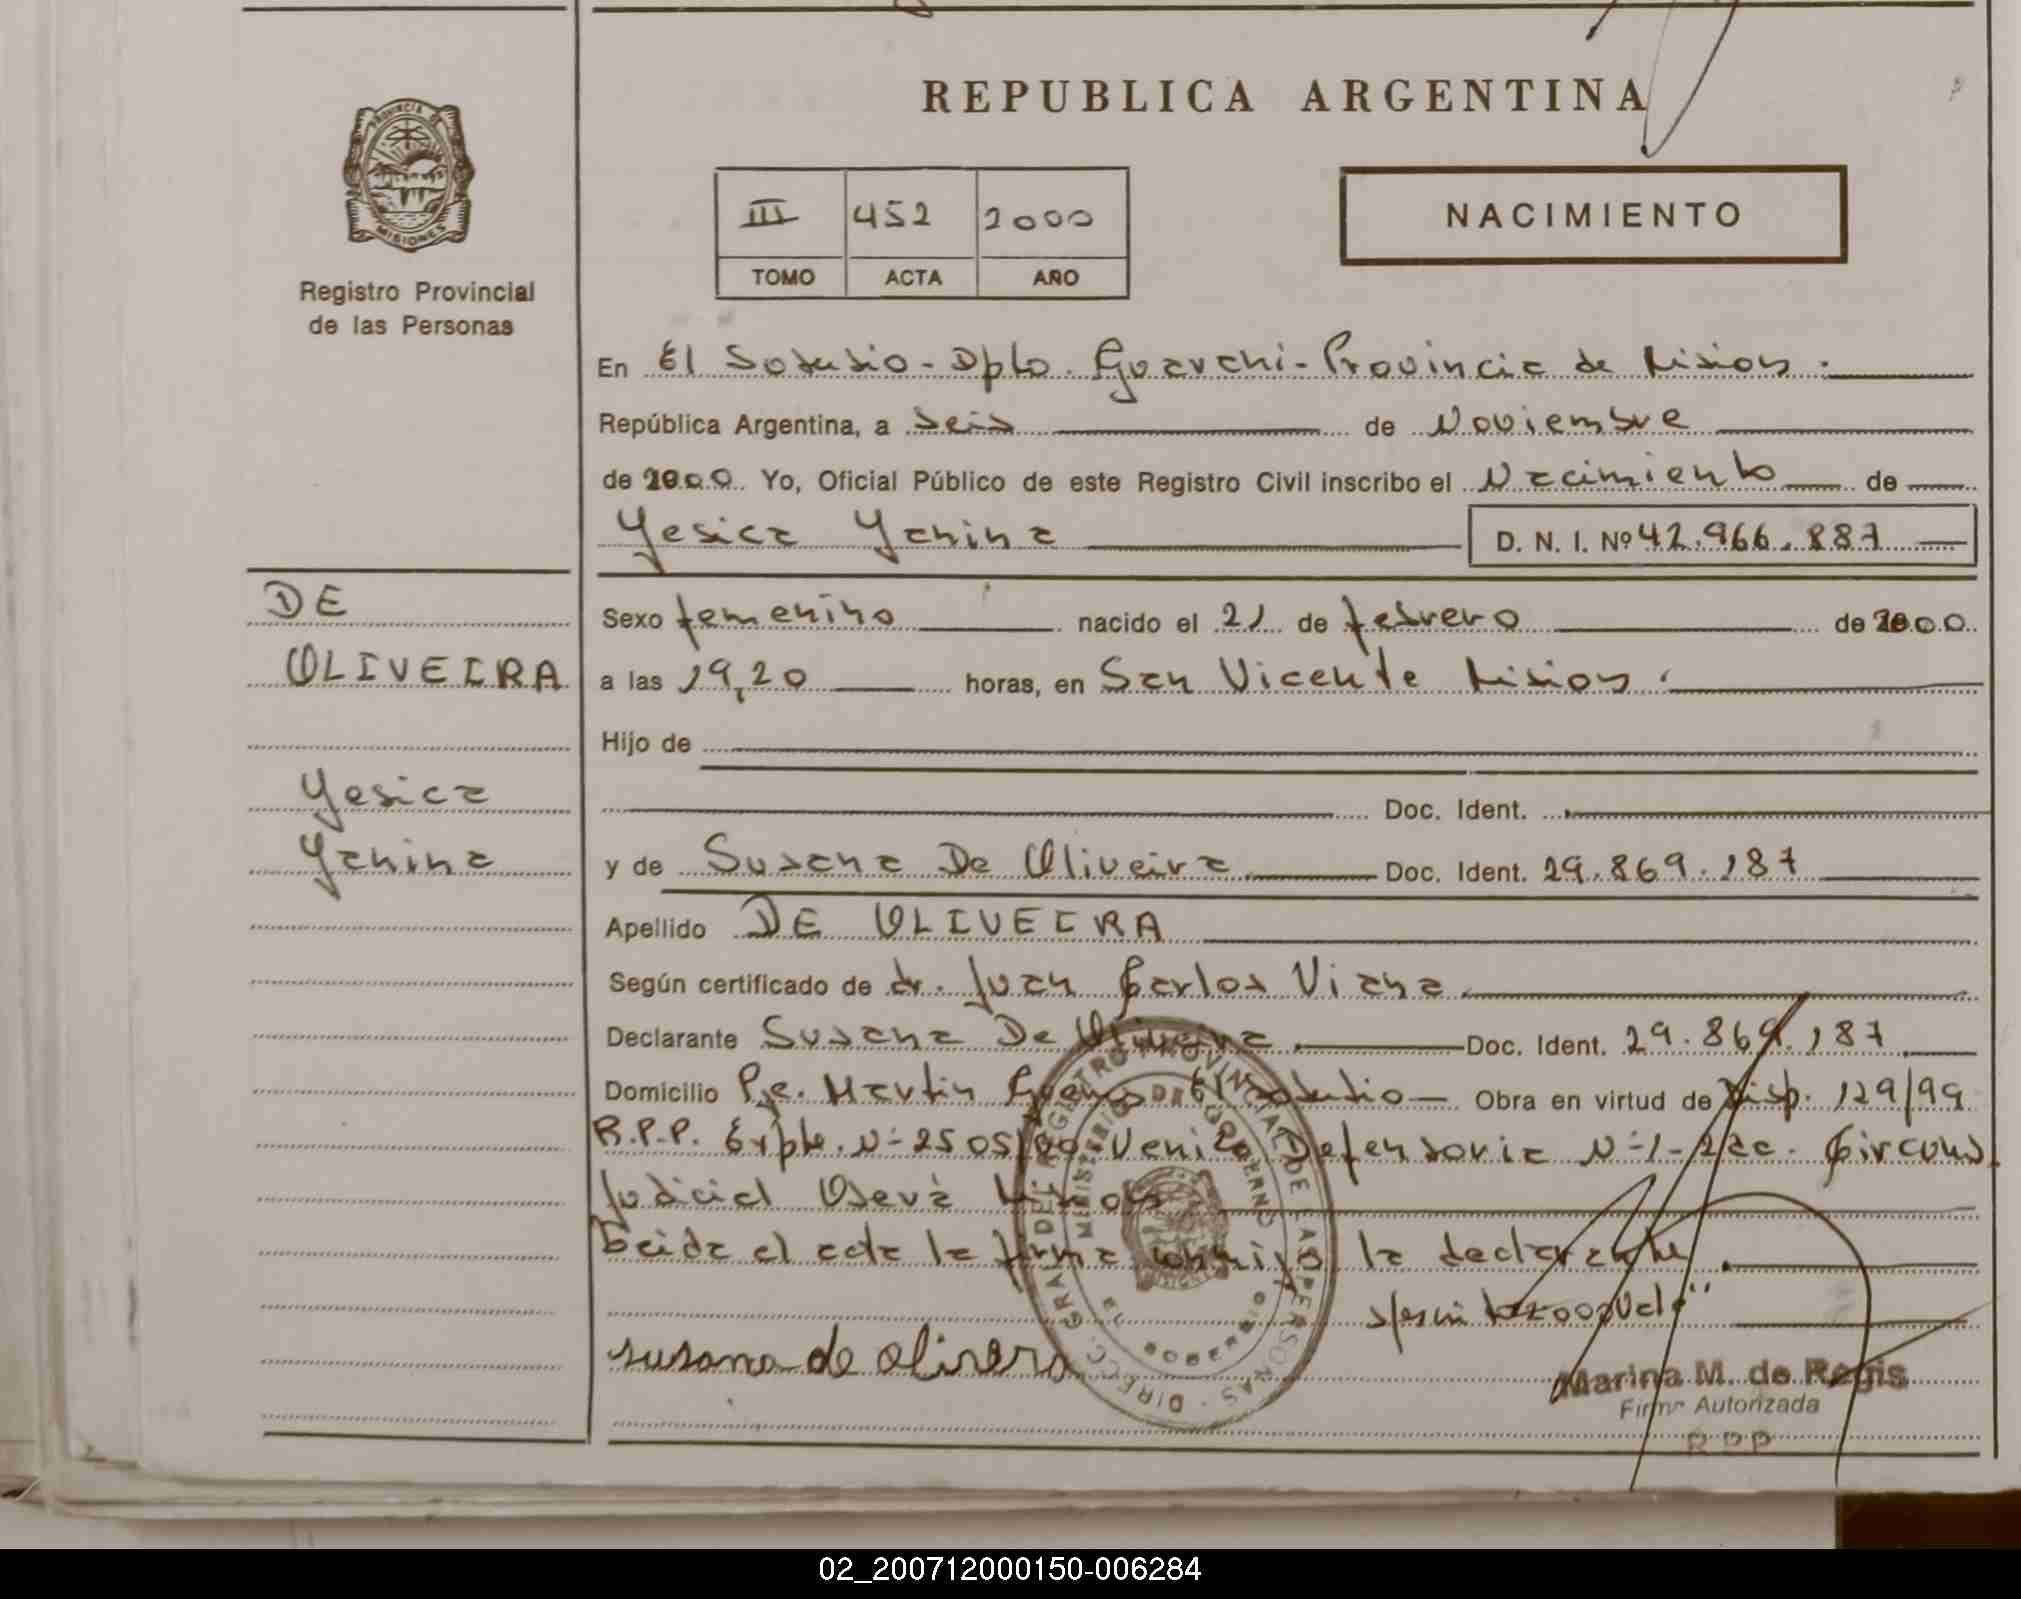 REPUBLICA ARGENTINA
PROVINCIA DE
MISIONES
Registro Provincial
de las Personas
III 452 2000
TOMO ACTA AÑO
NACIMIENTO
En El Soberbio - Dpto. Guarani - Provincia de Misiones.
República Argentina, a seis de Noviembre
de 2000 Yo, Oficial Público de este Registro Civil inscribo el Nacimiento de
Yesica Yanina D. N. I. Nº 42.966.887
DE
OLIVEIRA
Yesica
Yanina
Sexo femenino nacido el 21 de febrero de 2000
a las 19,20 horas, en San Vicente Misiones.
Hijo de
Doc. Ident.
y de Susana De Oliveira Doc. Ident. 29.869.187
Apellido DE OLIVEIRA
Según certificado de dr. Juan Carlos Viana
Declarante Susana De Oliveira Doc. Ident. 29.869.187
Domicilio Pje. Martin El Soberbio Obra en virtud de Disp. 129/99
R.P.P. Expte. Nº 2505/00 Defensoria Nº 1 - 2da. Circuns
Judicial Oberá Misiones
Leida el acta la firma conmigo la declarante.
susana de olivera
DIRECC. GRAL DEL REGISTRO PROVINCIAL DE LAS PERSONAS
MINISTERIO DE GOBIERNO
Marina M. de Regis
Firma Autorizada
R P P
02_200712000150-006284